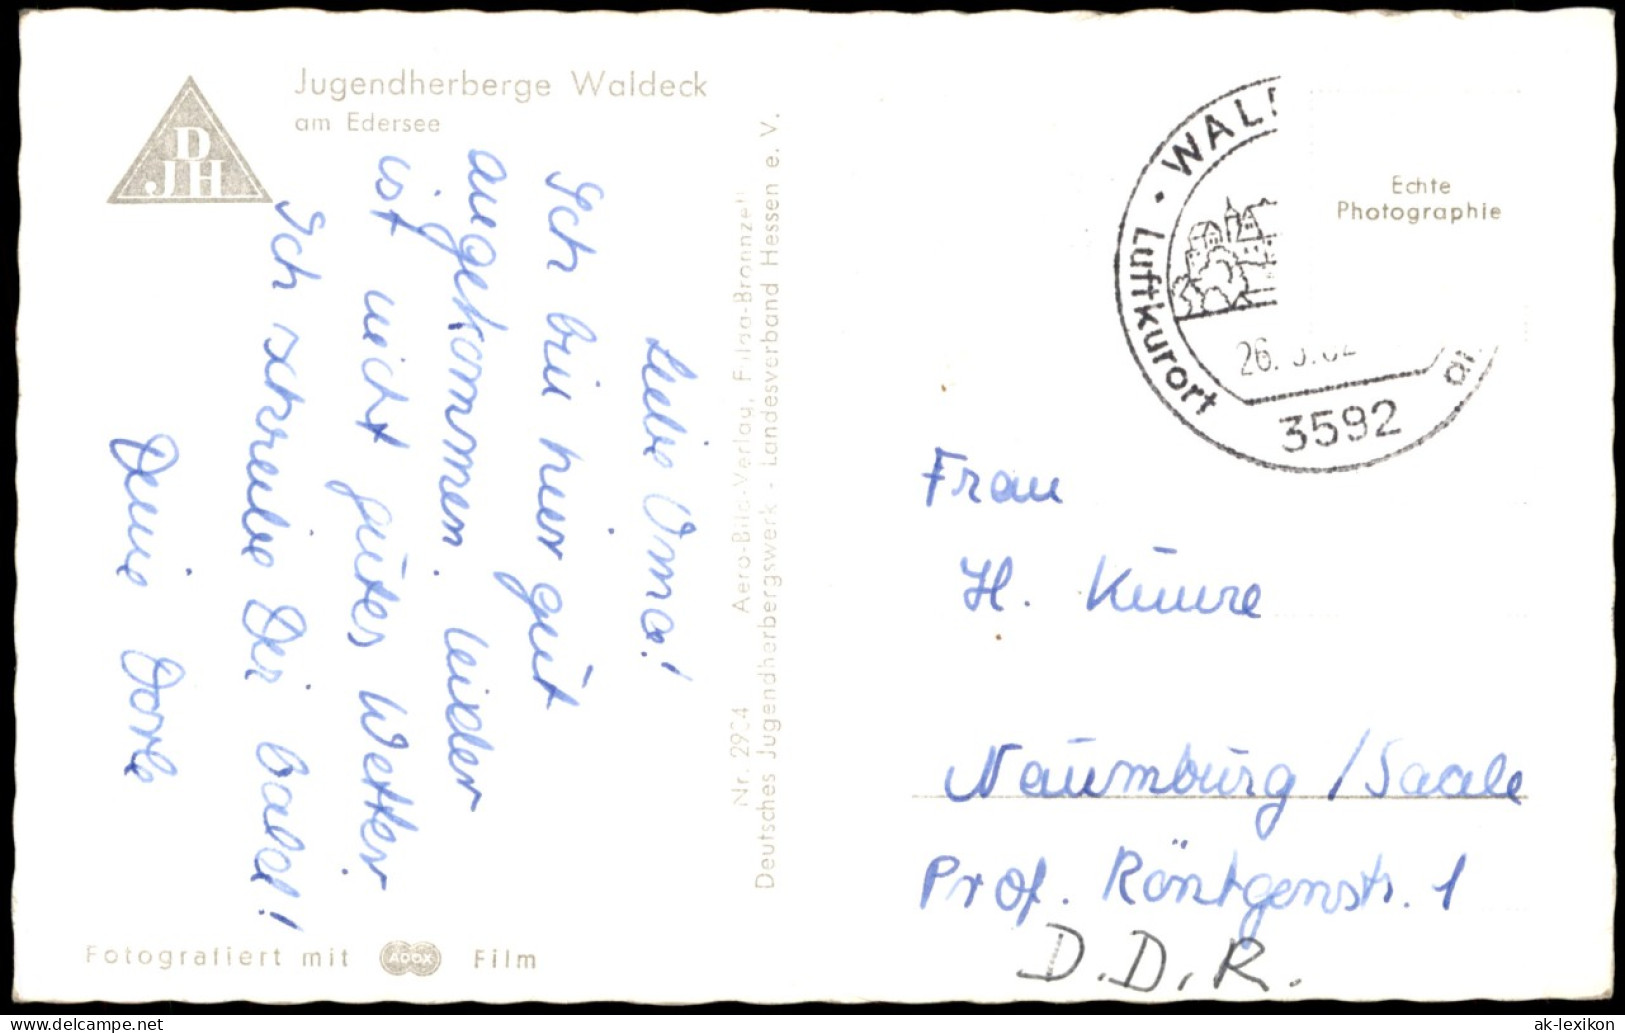 D
JH
Jugendherberge Waldeck
am Edersee
Liebe Oma!
Ich bin hier gut
angekommen. Leider
ist nicht gutes Wetter
Ich schreibe Dir bald!
Deine Dorle
Aero-Bild-Verlag, Fulda-Bronnzell
Deutsches Jugendherbergswerk - Landesverband Hessen e. V.
Fotografiert mit ADOX Film
Luftkurort
3592
Echte
Photographie
Frau
H. Kunze
Naumburg / Saale
Prof. Röntgenstr. 1
D.D.R.
ak-lexikon